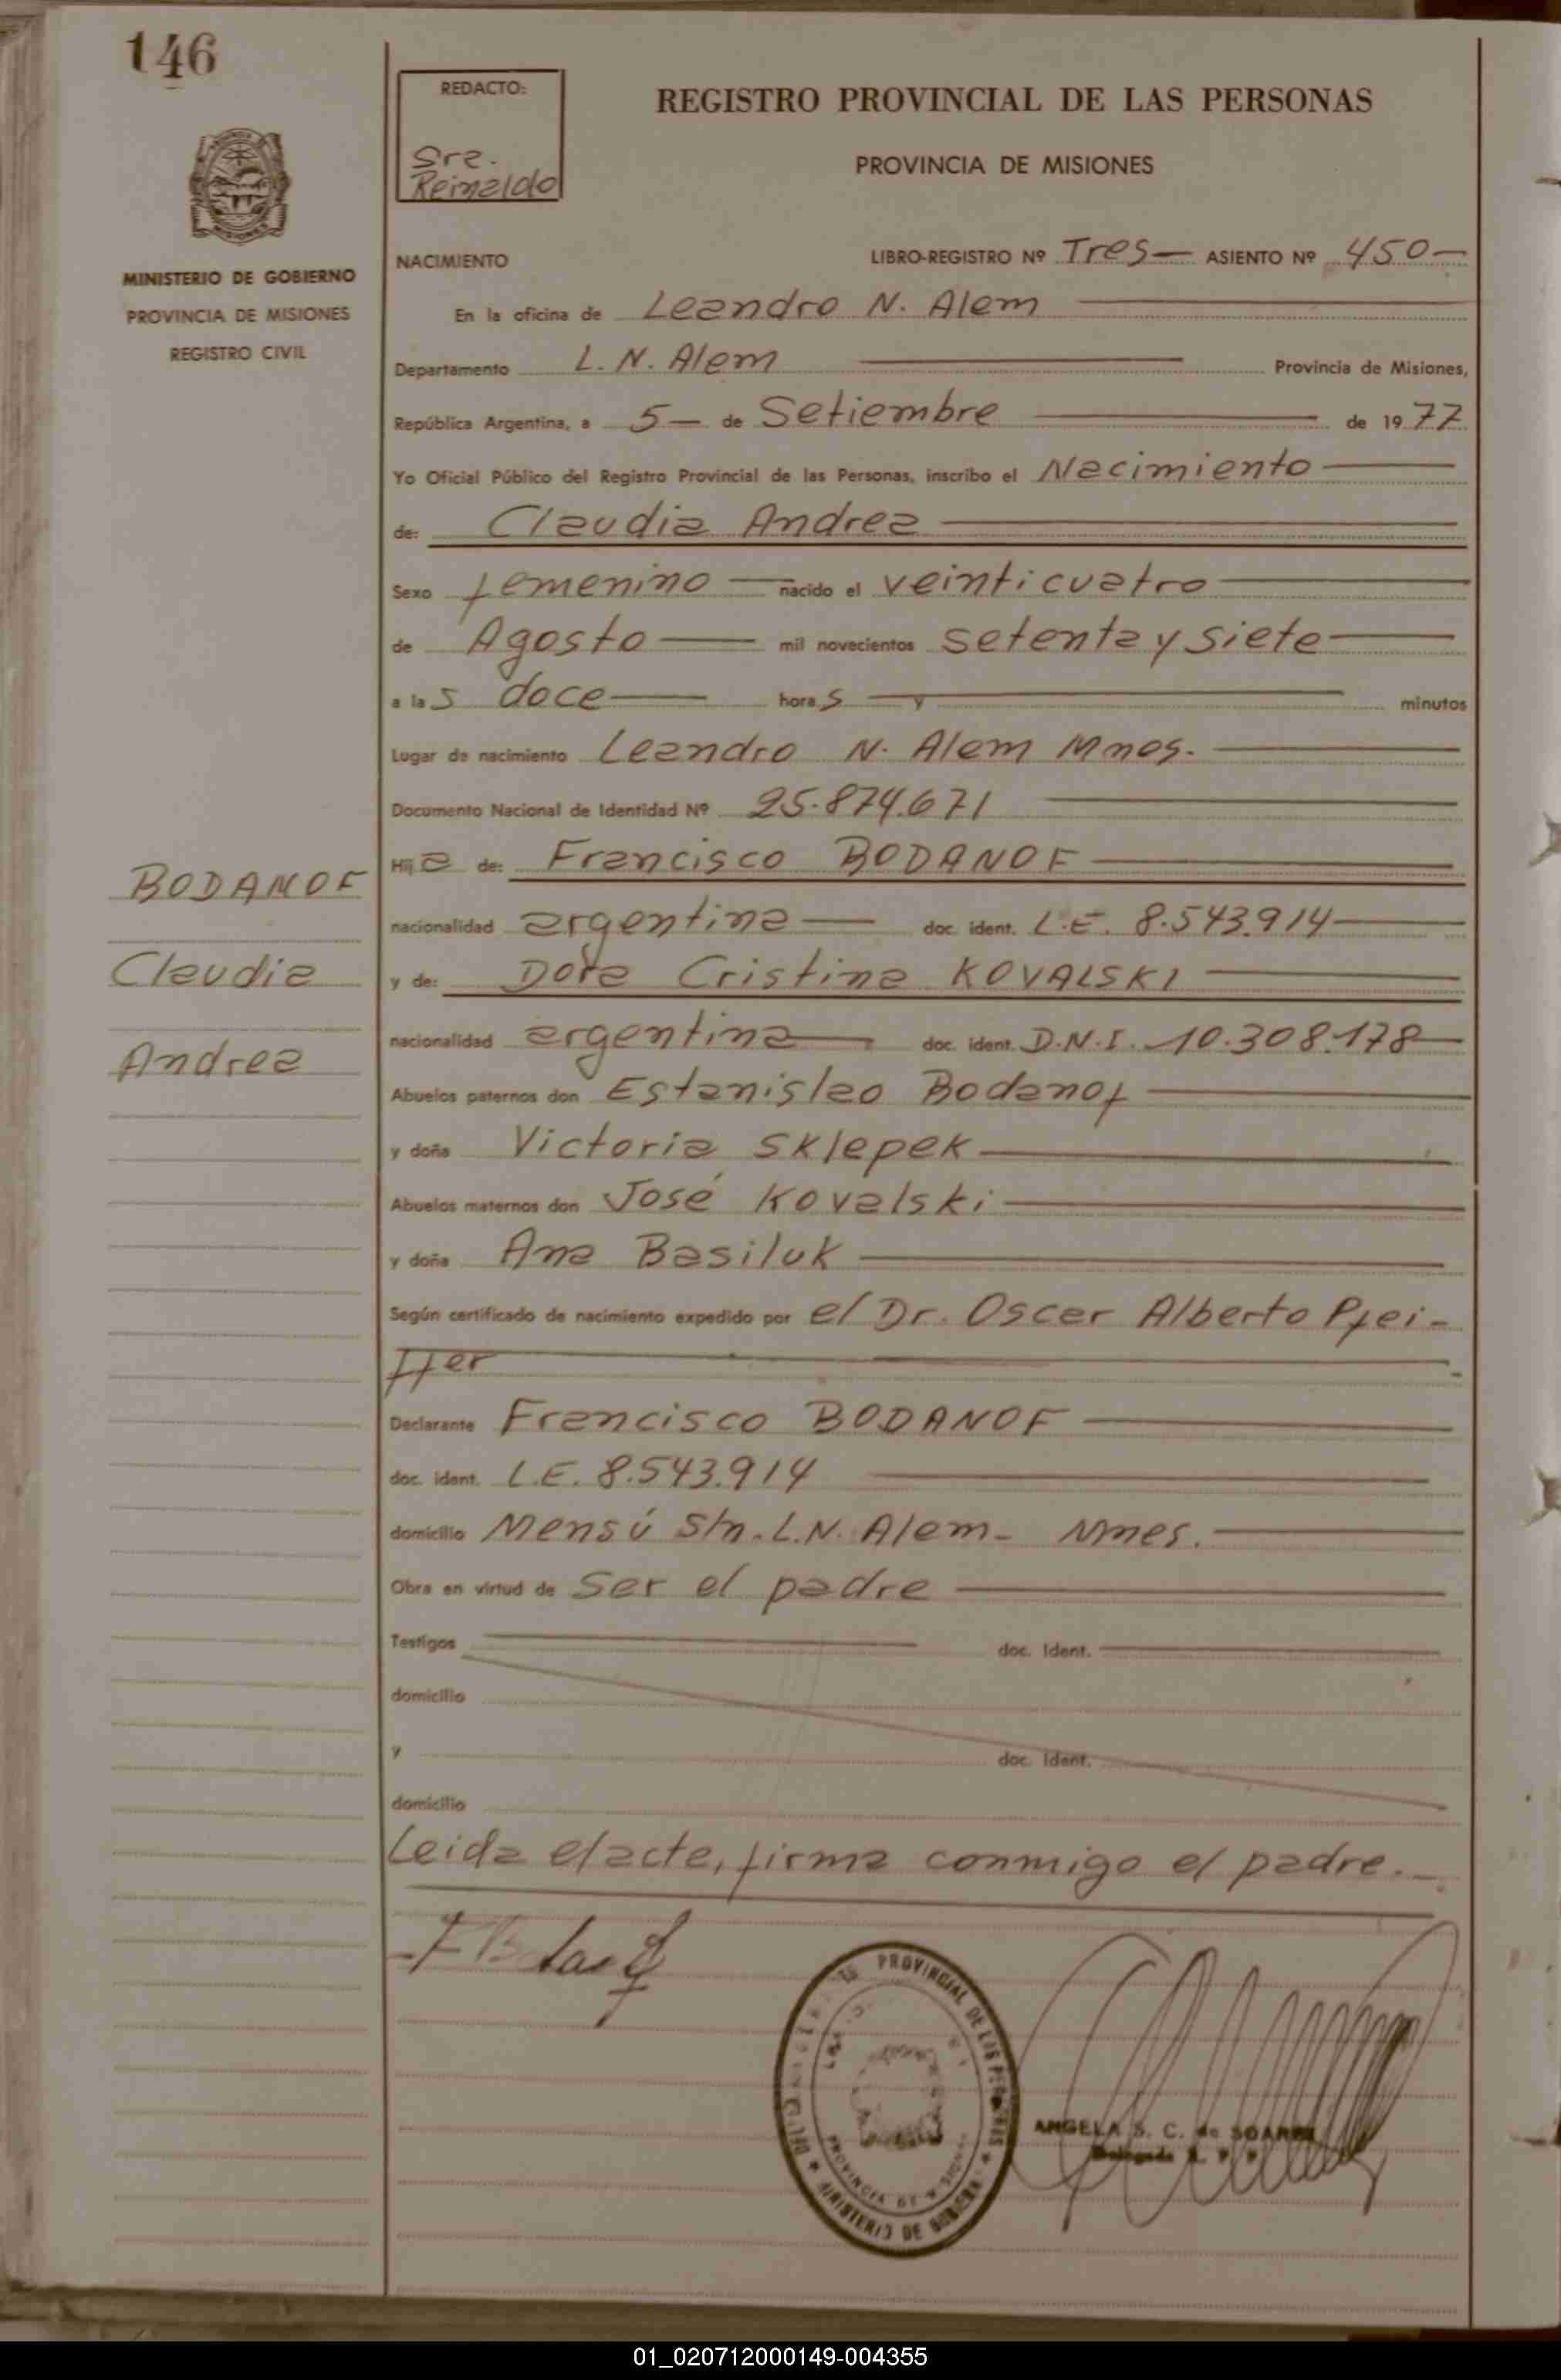 146
REDACTO:
Sra.
Reinaldo
REGISTRO PROVINCIAL DE LAS PERSONAS
PROVINCIA DE MISIONES
MINISTERIO DE GOBIERNO
PROVINCIA DE MISIONES
REGISTRO CIVIL
NACIMIENTO LIBRO-REGISTRO Nº Tres — ASIENTO Nº 450 —
En la oficina de Leandro N. Alem
Departamento L. N. Alem Provincia de Misiones,
República Argentina, a 5 — de Setiembre de 1977
Yo Oficial Público del Registro Provincial de las Personas, inscribo el Nacimiento
de: Claudia Andrea
Sexo femenino nacido el veinticuatro
de Agosto mil novecientos setenta y siete
a las doce horas y minutos
Lugar de nacimiento Leandro N. Alem Mnes.
Documento Nacional de Identidad Nº 25.874.671
Hija de: Francisco BODANOF
nacionalidad argentina doc. ident. L.E. 8.543.914
y de: Dora Cristina KOVALSKI
nacionalidad argentina doc. ident. D.N.I. 10.308.178
Abuelos paternos don Estanislao Bodanof
y doña Victoria Sklepek
Abuelos maternos don José Kovalski
y doña Ana Basiluk
Según certificado de nacimiento expedido por el Dr. Oscar Alberto Pfei-
ffer
Declarante Francisco BODANOF
doc. ident. L.E. 8.543.914
domicilio Mensú s/n. L.N. Alem - Mnes.
Obra en virtud de ser el padre
Testigos doc. Ident.
domicilio
y doc. Ident.
domicilio
Leida el acta, firma conmigo el padre.
BODANOF
Claudia
Andrea
PROVINCIAL DE LAS PERSONAS
PROVINCIA DE MISIONES
MINISTERIO DE GOBIERNO
ANGELA S. C. de SOARES
Delegada R. P. P.
01_020712000149-004355